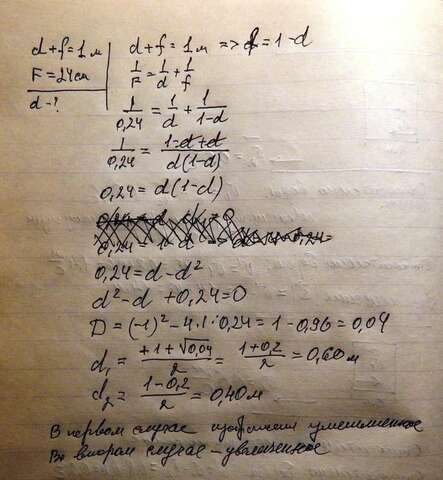 d+f=1м
F=24см
d-?
d+f=1м => f=1-d
1/F=1/d+1/f
1/0,24=1/d+1/(1-d)
1/0,24=(1-d+d)/(d(1-d))
0,24=d(1-d)
0,24=d-d²
d²-d+0,24=0
D=(-1)²-4·1·0,24=1-0,96=0,04
d₁=(+1+√0,04)/2=(1+0,2)/2=0,60м
d₂=(1-0,2)/2=0,40м
В первом случае изображение уменьшенное
Во втором случае - увеличенное